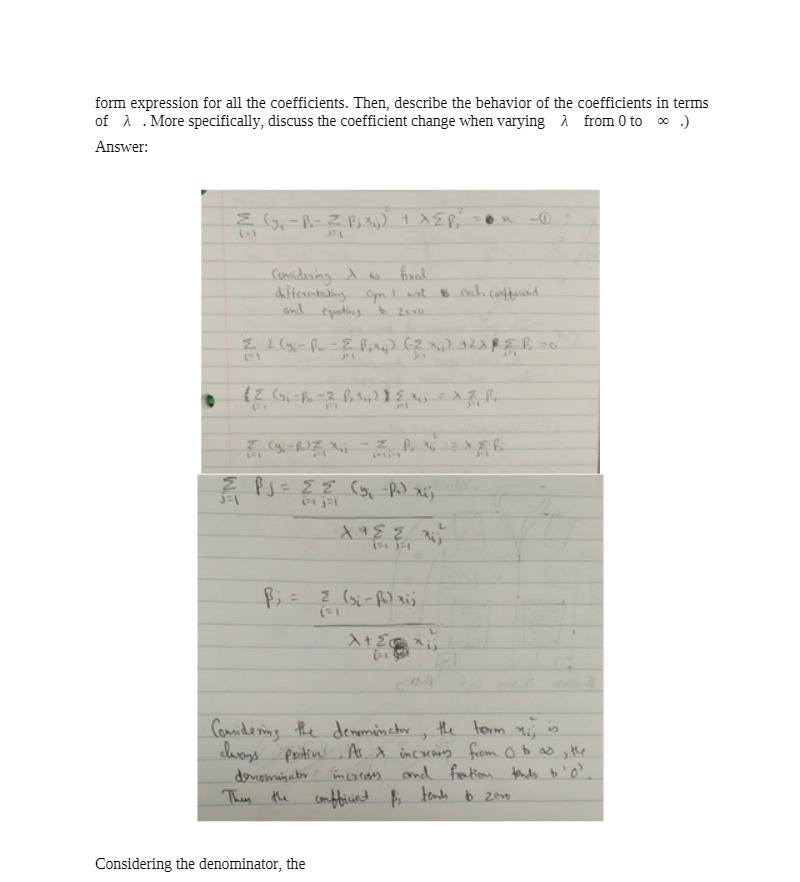 form expression for all the coefficients. Then, describe the behavior of the coefficients in terms
of λ . More specifically, discuss the coefficient change when varying λ from 0 to ∞ .)
Answer:
Σ_{i=1} (y_i - β_0 - Σ_{j=1} β_j x_ij)² + λ Σ β_j² = x - ①
Considering λ as fixed
differentiating eqn 1 wrt each coefficient
and equating to zero
Σ_{i=1} 2 (y_i - β_0 - Σ_{j=1} β_j x_ij) (-Σ_{j=1} x_ij) + 2λ Σ_{j=1} β_j = 0
{Σ_{i=1} (y_i - β_0 - Σ_{j=1} β_j x_ij)} Σ_{j=1} x_ij = λ Σ_{j=1} β_j
Σ_{i=1} (y_i - β_0) Σ_{j=1} x_ij - Σ_{i=1 j=1} β_j x_ij² = λ Σ_{j=1} β_j
Σ_{j=1} βj = Σ_{i=1} Σ_{j=1} (y_i - β_0) x_ij
λ + Σ_{i=1} Σ_{j=1} x_ij²
β_j = Σ_{i=1} (y_i - β_0) x_ij
λ + Σ_{i=1} x_ij²
Considering the denominator, the term x_ij² is
always positive. As λ increases from 0 to ∞, the
denominator increases and fraction tends to '0'.
Thus the coefficient β_j tends to zero
Considering the denominator, the